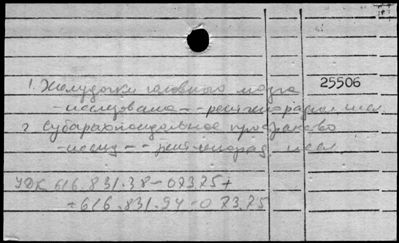 1. Желудочки головного мозга 25506
- исследование - - рентгенография иссл
2. Субарахноидальное пространство
- иссл - - рентгенограф. иссл
УДК 616.831.38-073.75+
+616.831.94-073.75